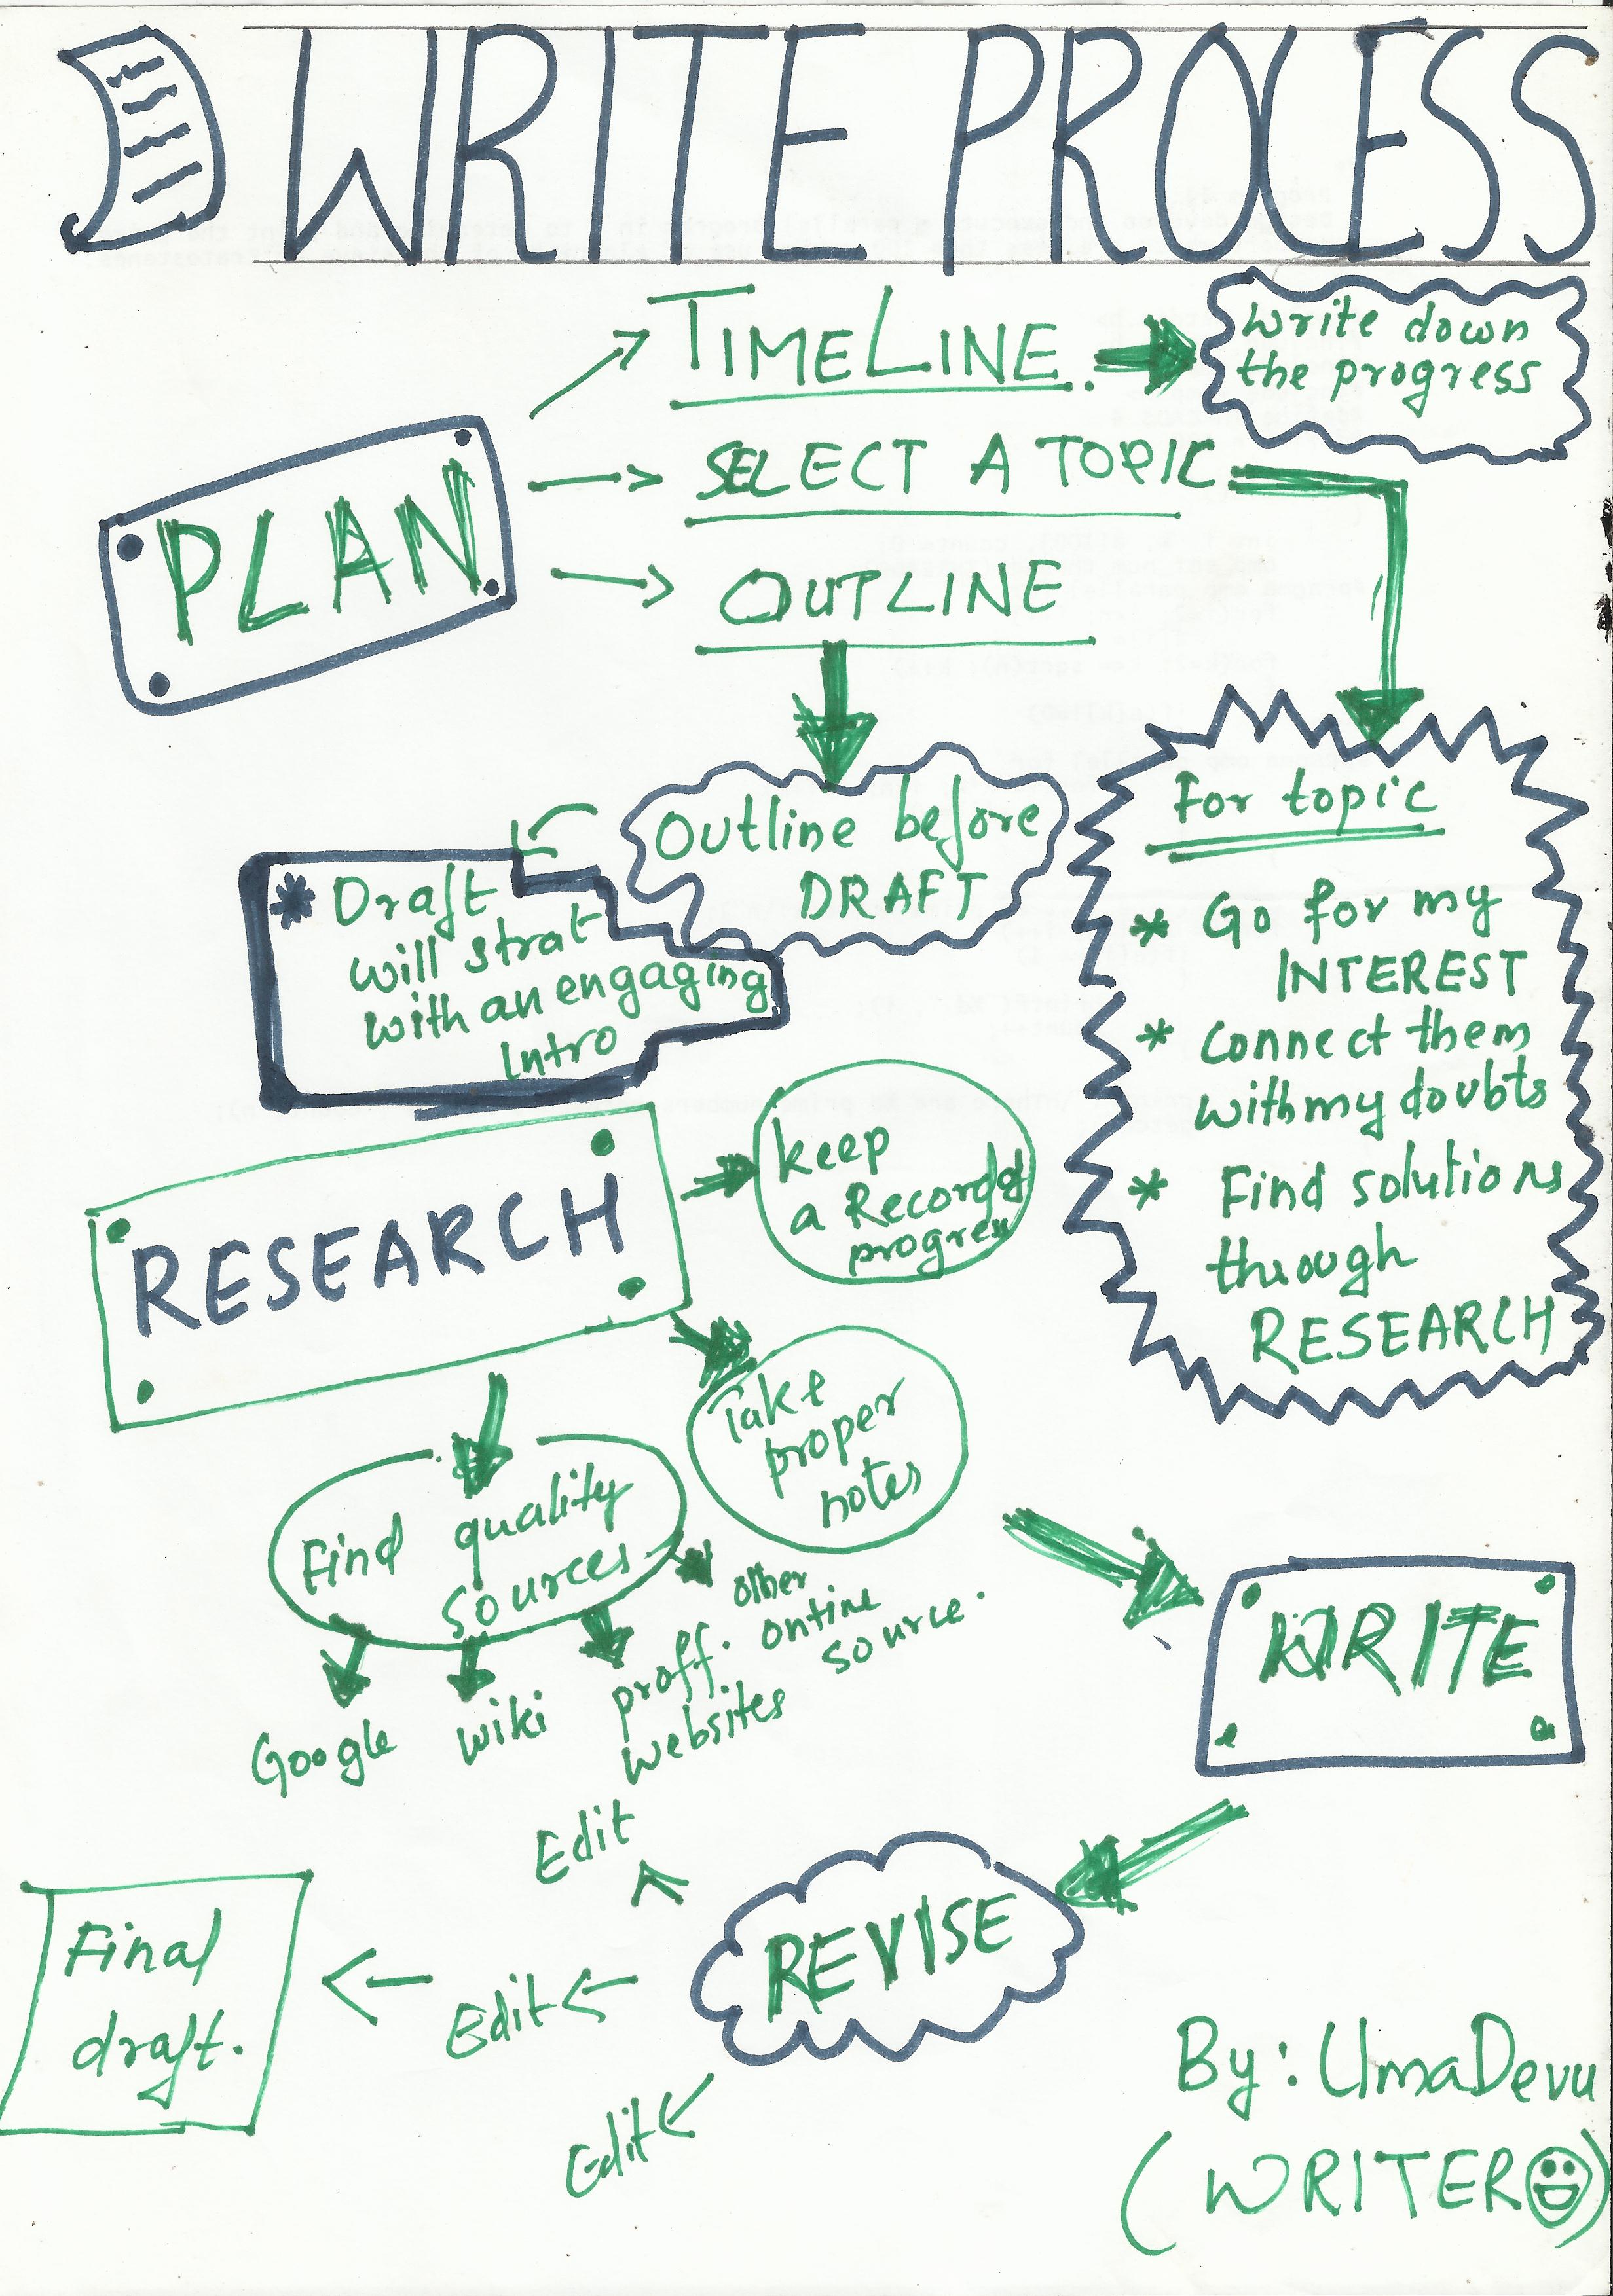 WRITE PROCESS
TIMELINE.
Write down
the progress
SELECT A TOPIC
PLAN
OUTLINE
Outline before
DRAFT
* Draft
will strat
with an engaging
Intro
For topic
* Go for my
INTEREST
* Connect them
with my doubts
* Find solutions
through
RESEARCH
RESEARCH
keep
a Record of
progress
Take
proper
notes
Find quality
sources
Google
wiki
proff.
websites
other
online
source.
WRITE
REVISE
Edit
Edit
Edit
Final
draft.
By: UmaDevu
(WRITER☺)